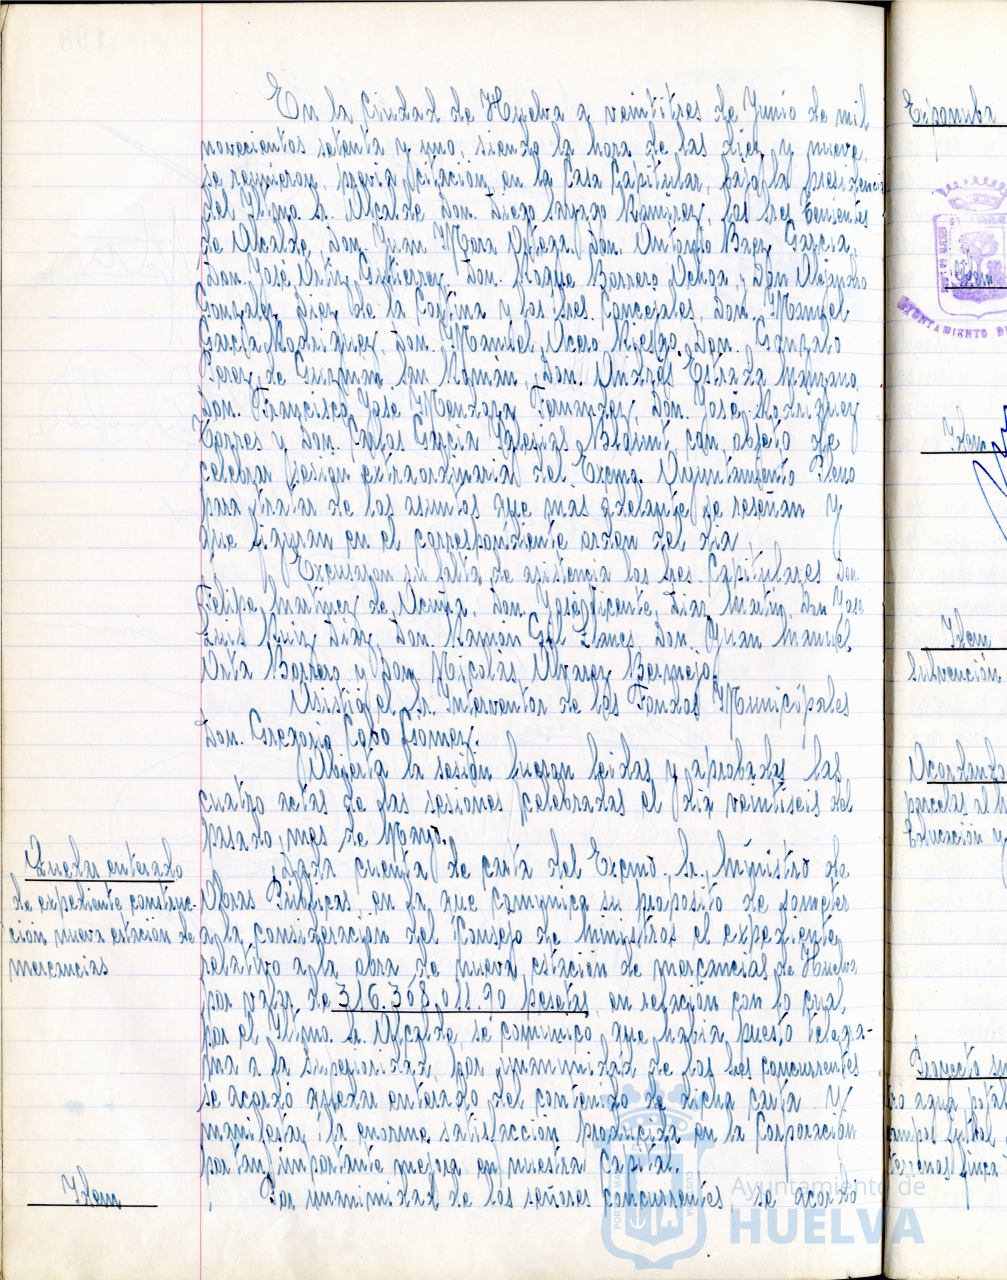 En la Ciudad de Huelva a veintitres de Junio de mil
novecientos setenta y uno, siendo la hora de las diez y nueve,
se reunieron, previa citacion, en la Casa Capitular, bajo la presidencia
del Iltmo. Sr. Alcalde Don. Diego Ramirez, los sres Tenientes
de Alcalde, Don. Juan Mora Don. Antonio Baez Garcia,
Don. José Ortiz Gutierrez, Don. Roque Barrero Ochoa, y Don Alejandro
Gonzalez Diez de la Cortina y los Sres. Concejales, Don. Manuel
Garcia Rodriguez, Don. Manuel Riesgo, Don. Gonzalo
Perez de Guzman San Román, Don. Andrés Estrada Manzano,
Don. Francisco José Mendoza Fernandez, Don. José Rodriguez
Torres y Don. Carlos Garcia Iglesias con objeto de
celebrar sesion extraordinaria del Excmo. Ayuntamiento Pleno
para tratar de los asuntos que mas adelante se reseñan y
que figuran en el correspondiente orden del dia.
Excusaron su falta de asistencia los sres. Capitulares Don.
Felipe Martinez de Acuña, Don. José Vicente, Diaz Martin, Don Jose
Luis Ruiz Diaz, Don. Ramon Gil Llanes, Don Juan Manuel,
Orta Barrero y Don Nicolás Alvarez Bermejo.
Asistió el Sr. Interventor de los Fondos Municipales
Don. Gregorio Cobo Gomez.
Abierta la sesión fueron leidas y aprobadas las
cuatro actas de las sesiones celebradas el dia veintiseis del
pasado mes de Mayo.
Quedar enterado
de expediente construc-
cion nueva estacion de
mercancias
Dada cuenta de carta del Excmo. Sr. Ministro de
Obras Públicas, en la que comunica su proposito de someter
a la consideracion del Consejo de Ministros el expediente
relativo a la obra de nueva estación de mercancias de Huelva
por valor de 316.368.011.90 pesetas, en relación con lo cual
por el Iltmo. Sr. Alcalde se comunicó que habia puesto telegra-
ma a la Superioridad, por unanimidad de los Sres concurrentes
se acordó quedar enterado del contenido de dicha carta y
manifestar la enorme satisfaccion producida en la Corporación
por tan importante mejora en nuestra Capital.
Idem
Por unanimidad de los señores concurrentes se acordó
Idem
Idem
Subvención
parcelas al
Educación y
Proyecto
agua
AYUNTAMIENTO DE
Ayuntamiento de
HUELVA